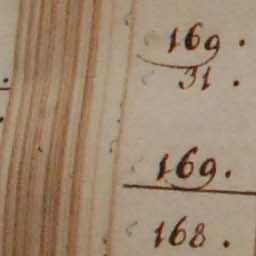 169.
31.
169.
168.